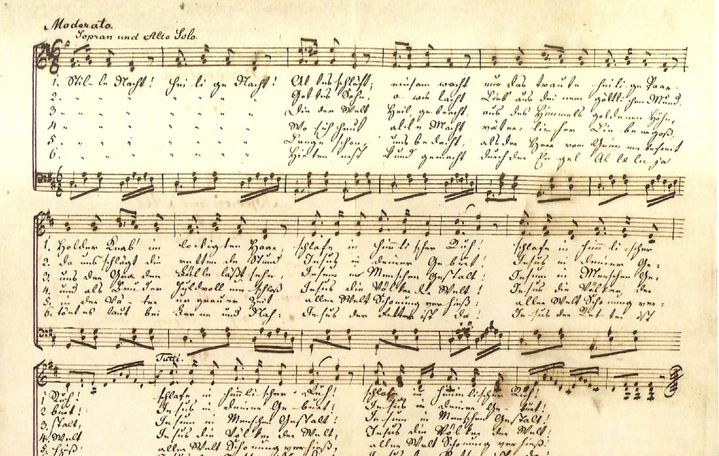 Moderato.
Sopran und Alto Solo.
1. Stille Nacht! Heilige Nacht! Alles schläft; einsam wacht nur das traute heilige Paar.
2. " " " " " " Gottes Sohn, o wie lacht Lieb aus deinem göttlichen Mund,
3. " " " " " " Die der Welt Heil gebracht, aus des Himmels goldenen Höhn,
4. " " " " " " Wo sich heut alle Macht väterlicher
5. " " " " " " Lange schon uns bedacht, als der Herr vom Grimme befreit
6. " " " " " " Hirten erst kund gemacht durch der Engel Alleluja
1. Holder Knab' im lockigten Haar, schlafe in himmlischer Ruh! schlafe in himmlischer
2. da uns schlägt die rettende Stund. Jesus in deiner Geburt! Jesus in deiner Ge-
3. uns der Gnaden Fülle läßt sehn, Jesum in Menschen Gestalt! Jesum in Menschen Ge-
4. und als Bruder huldvoll umschloß Jesus die Völker der Welt! Jesus die Völker der
5. in der Väter urgrauer Zeit aller Welt Schonung verhieß! aller Welt Schonung ver-
6. tönt es laut bei Ferne und Nah: Jesus der Retter ist da! Jesus der Retter ist
Tutti.
1. Ruh! schlafe in himmlischer Ruh! schlafe in himmlischer Ruh!
2. burt! Jesus in deiner Geburt! Jesus in deiner Geburt!
3. stalt, Jesum in Menschen Gestalt! Jesum in Menschen Gestalt!
4. Welt Jesus die Völker der Welt! Jesus die Völker der Welt!
5. hieß aller Welt Schonung verhieß, aller Welt Schonung verhieß!